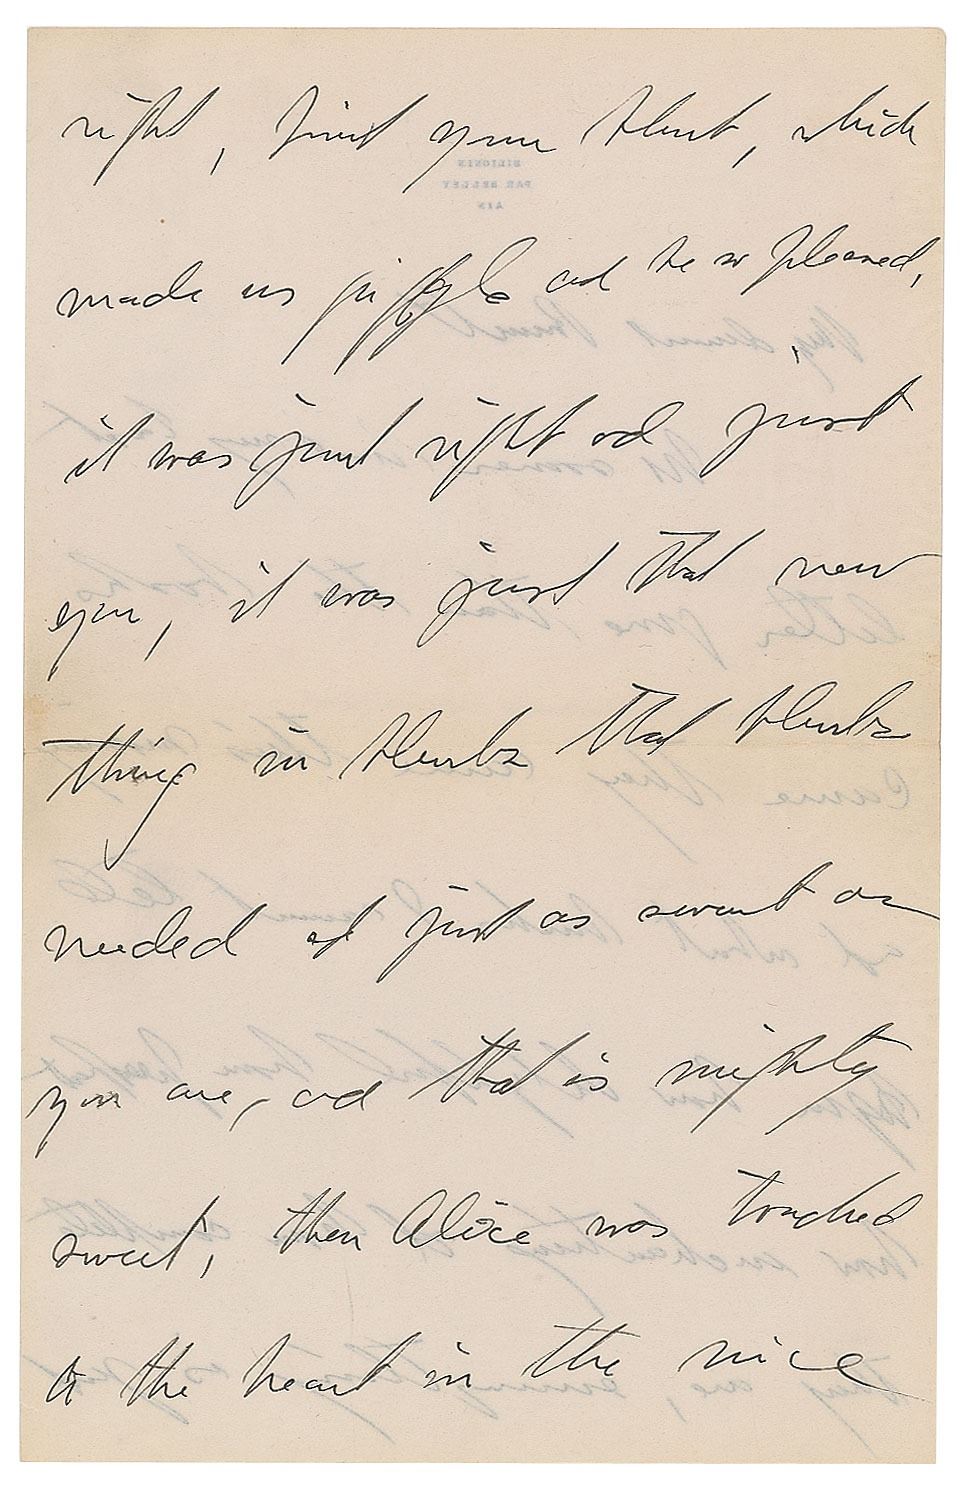 right, first your blurb, which
BILIGNIN
PAR BELLEY
AIN
made us giggle and be so pleased,
it was just right and just
you, it was just that new
thing in blurbs that blurbs
needed and just as sweet as
you are, and that is mighty
sweet, then Alice was touched
to the heart in the nice